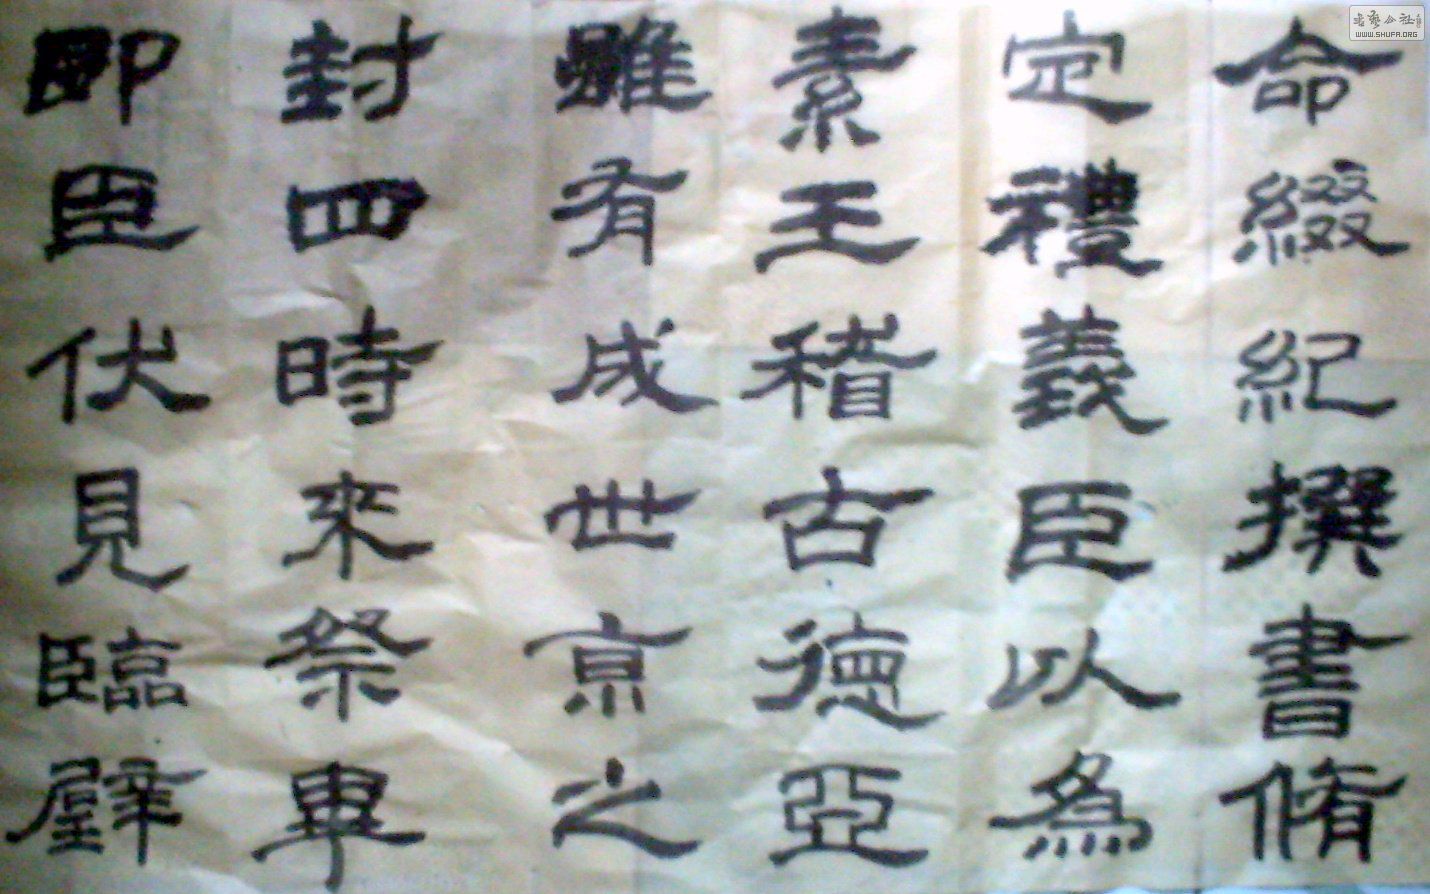 命綴紀撰書脩
定禮義臣以為
素王稽古德亞
雖有成世亰之
封四時來祭畢
即臣伏見臨璧
书艺公社
WWW.SHUFA.ORG